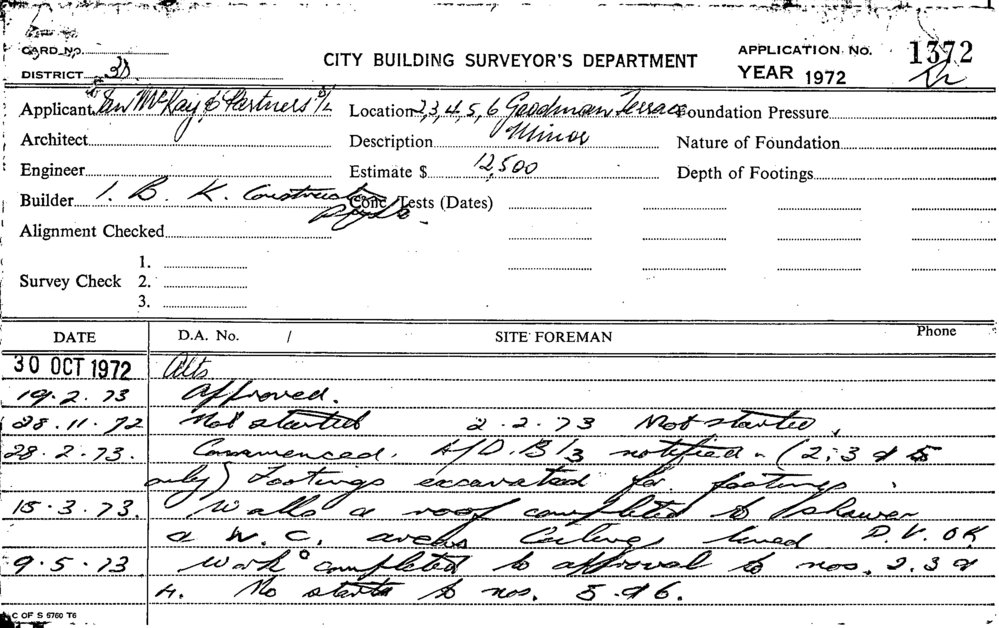 CARD No.
CITY BUILDING SURVEYOR'S DEPARTMENT
APPLICATION No. 1372
DISTRICT
YEAR 1972
Applicant Ian McKay & Partners P/L
Location 2,3,4,5,6 Goodman Terrace
Foundation Pressure
Architect
Description Minor
Nature of Foundation
Engineer
Estimate $ 12,500
Depth of Footings
Builder I. B. K. Constructions Pty Ltd
Conc. Tests (Dates)
Alignment Checked
Survey Check
1.
2.
3.
DATE D.A. No. / SITE FOREMAN Phone
30 OCT 1972 Alts
19.2.73 Approved.
28.11.72 Not started 2.2.73 Not started.
28.2.73. Commenced. notified. (2, 3 & 5
only) Footings excavated for footings.
15.3.73. Walls & roof completed to shower
& W.C. areas Ceilings lined D.V. OK
9.5.73 Work completed to approval to nos. 2.3 &
4. No starts to nos. 5 & 6.
C OF S 6760 T6